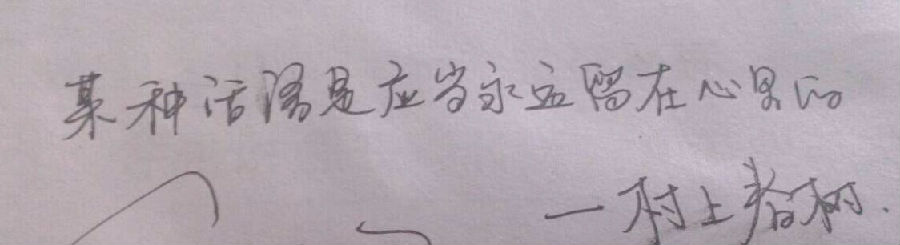 某种话语是应当永远留在心里的
—村上春树.